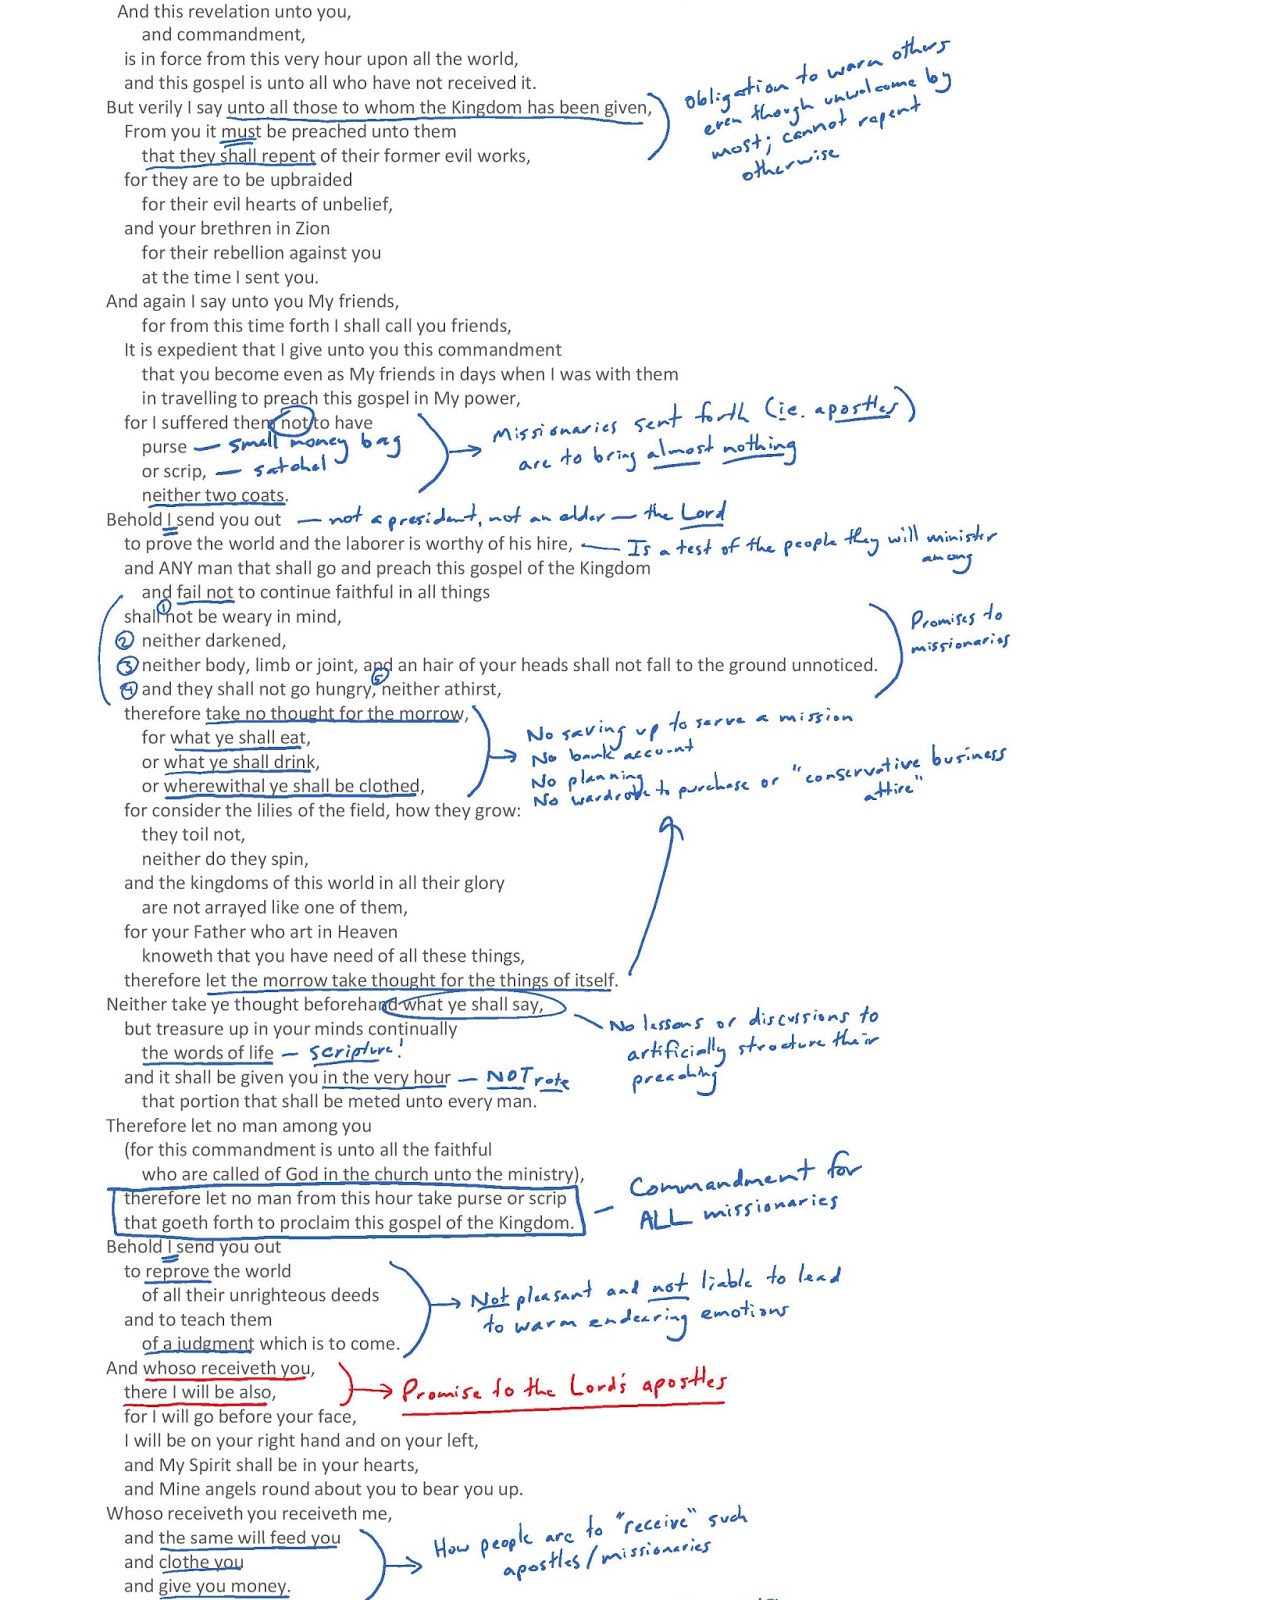 And this revelation unto you,
and commandment,
is in force from this very hour upon all the world,
and this gospel is unto all who have not received it.
But verily I say unto all those to whom the Kingdom has been given,
From you it must be preached unto them
that they shall repent of their former evil works,
Obligation to warn others
even though unwelcome by
most; cannot repent
otherwise
for they are to be upbraided
for their evil hearts of unbelief,
and your brethren in Zion
for their rebellion against you
at the time I sent you.
And again I say unto you My friends,
for from this time forth I shall call you friends,
It is expedient that I give unto you this commandment
that you become even as My friends in days when I was with them
in travelling to preach this gospel in My power,
for I suffered them not to have
purse — small money bag
or scrip, — satchel
neither two coats.
Missionaries sent forth (ie. apostles)
are to bring almost nothing
Behold I send you out — not a president, not an elder — the Lord
to prove the world and the laborer is worthy of his hire, — Is a test of the people they will minister
among
and ANY man that shall go and preach this gospel of the Kingdom
and fail not to continue faithful in all things
shall ① not be weary in mind,
② neither darkened,
③ neither body, limb or joint, and an hair of your heads shall not fall to the ground unnoticed.
④ and they shall not go hungry, ⑤ neither athirst,
Promises to
missionaries
therefore take no thought for the morrow,
for what ye shall eat,
or what ye shall drink,
or wherewithal ye shall be clothed,
No saving up to serve a mission
No bank account
No planning
No wardrobe to purchase or "conservative business
attire"
for consider the lilies of the field, how they grow:
they toil not,
neither do they spin,
and the kingdoms of this world in all their glory
are not arrayed like one of them,
for your Father who art in Heaven
knoweth that you have need of all these things,
therefore let the morrow take thought for the things of itself.
Neither take ye thought beforehand what ye shall say,
No lessons or discussions to
artificially structure their
preaching
but treasure up in your minds continually
the words of life — scripture!
and it shall be given you in the very hour — NOT rote
that portion that shall be meted unto every man.
Therefore let no man among you
(for this commandment is unto all the faithful
who are called of God in the church unto the ministry),
therefore let no man from this hour take purse or scrip
that goeth forth to proclaim this gospel of the Kingdom.
— Commandment for
ALL missionaries
Behold I send you out
to reprove the world
of all their unrighteous deeds
and to teach them
of a judgment which is to come.
Not pleasant and not liable to lead
to warm endearing emotions
And whoso receiveth you,
there I will be also,
Promise to the Lord's apostles
for I will go before your face,
I will be on your right hand and on your left,
and My Spirit shall be in your hearts,
and Mine angels round about you to bear you up.
Whoso receiveth you receiveth me,
and the same will feed you
and clothe you
and give you money.
How people are to "receive" such
apostles/missionaries